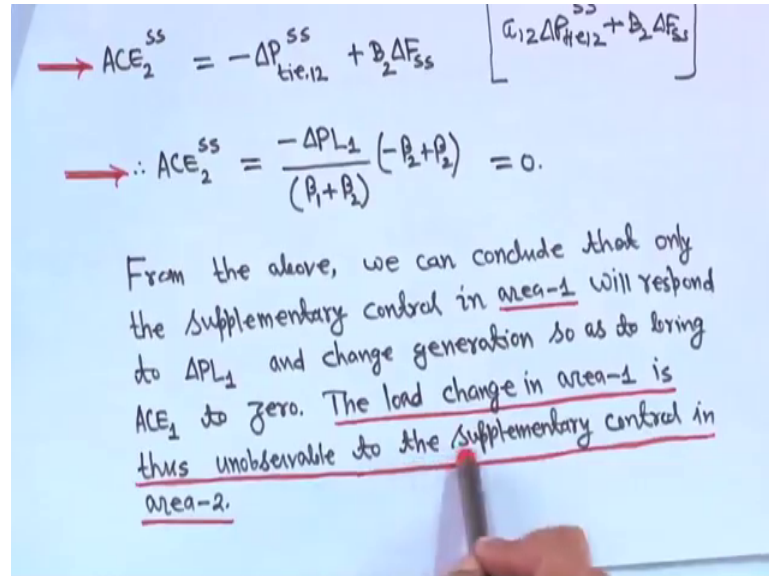 ACE₂ˢˢ = -ΔPˢˢ_tie,12 + B₂ΔF_ss [a₁₂ΔPˢˢ_tie12 + B₂ΔF_ss]
∴ ACE₂ˢˢ = -ΔPL₁/(β₁+β₂) (-β₂+β₂) = 0.
From the above, we can conclude that only
the supplementary control in area-1 will respond
to ΔPL₁ and change generation so as to bring
ACE₁ to zero. The load change in area-1 is
thus unobservable to the supplementary control in
area-2.